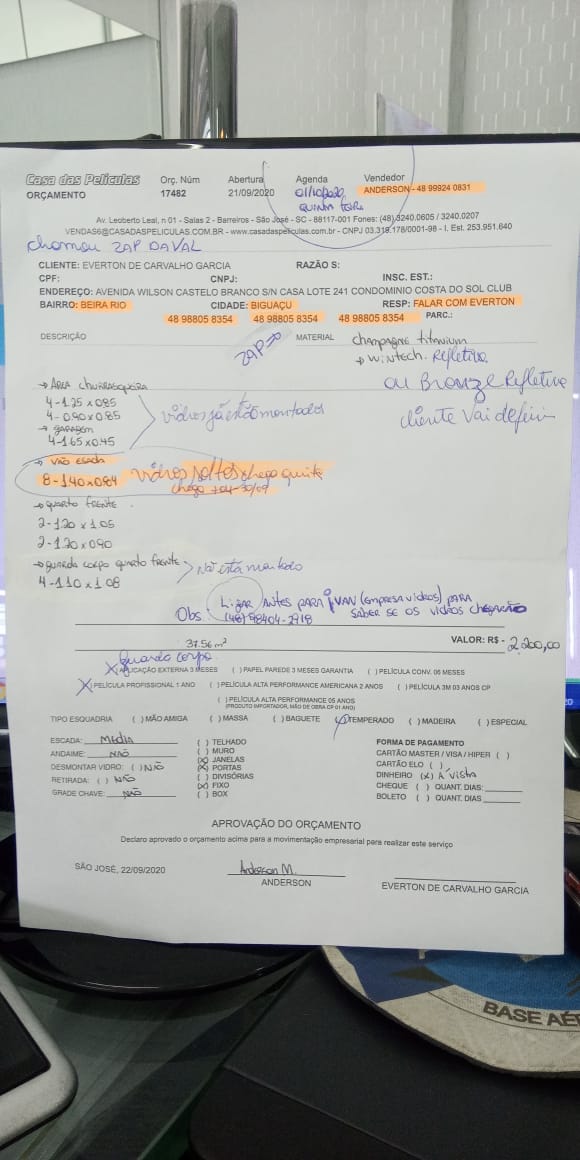 Casa das Películas Orç. Núm Abertura Agenda Vendedor
ORÇAMENTO 17482 21/09/2020 01/10/2020 ANDERSON - 48 99924 0831
QUINTA FEIRA
Av. Leoberto Leal, n 01 - Salas 2 - Barreiros - São José - SC - 88117-001 Fones: (48) 3240.0605 / 3240.0207
VENDAS6@CASADASPELICULAS.COM.BR - www.casadaspeliculas.com.br - CNPJ 03.319.178/0001-98 - I. Est. 253.951.640
chamou ZAP DAVAL
CLIENTE: EVERTON DE CARVALHO GARCIA RAZÃO S:
CPF: CNPJ: INSC. EST.:
ENDEREÇO: AVENIDA WILSON CASTELO BRANCO S/N CASA LOTE 241 CONDOMINIO COSTA DO SOL CLUB
BAIRRO: BEIRA RIO CIDADE: BIGUAÇU RESP: FALAR COM EVERTON
48 98805 8354 48 98805 8354 48 98805 8354 PARC.:
DESCRIÇÃO MATERIAL champagne titanium
ZAP
→ WINTECH. Refletiva
ou Bronze Refletivo
cliente Vai definir
→ ÁREA churrasqueira
4-1.25 x 0.85
4-0.90 x 0.85
vidros já estão montados
→ GARAGEM
4-1.65 x 0.45
→ VÃO ESCADA
8-1.40 x 0.84 vidros soltos chega quinta
→ QUARTO FRENTE
2-1.20 x 1.05
2-1.20 x 0.90
→ guarda corpo quarto frente
Não está montado
4-1.10 x 1.08
Obs: Ligar antes para IVAN (empresa vidros) para
(48) 98404-2918 saber se os vidros chegarão
37.56 m² VALOR: R$ - 2.260,00
Guarda corpo
(X) APLICAÇÃO EXTERNA 3 MESES ( ) PAPEL PAREDE 3 MESES GARANTIA ( ) PELÍCULA CONV. 06 MESES
(X) PELÍCULA PROFISSIONAL 1 ANO ( ) PELÍCULA ALTA PERFORMANCE AMERICANA 2 ANOS ( ) PELÍCULA 3M 03 ANOS CP
( ) PELÍCULA ALTA PERFORMANCE 05 ANOS
(PRODUTO IMPORTADOR, MÃO DE OBRA CP 01 ANO)
TIPO ESQUADRIA ( ) MÃO AMIGA ( ) MASSA ( ) BAGUETE (/) TEMPERADO ( ) MADEIRA ( ) ESPECIAL
ESCADA: Média ( ) TELHADO FORMA DE PAGAMENTO
ANDAIME: NÃO ( ) MURO CARTÃO MASTER / VISA / HIPER ( )
(X) JANELAS
DESMONTAR VIDRO: ( ) NÃO (X) PORTAS CARTÃO ELO ( )
RETIRADA: ( ) NÃO ( ) DIVISÓRIAS DINHEIRO (X) A Vista
(X) FIXO CHEQUE ( ) QUANT. DIAS:
GRADE CHAVE: NÃO ( ) BOX BOLETO ( ) QUANT. DIAS
APROVAÇÃO DO ORÇAMENTO
Declaro aprovado o orçamento acima para a movimentação empresarial para realizar este serviço
SÃO JOSÉ, 22/09/2020 Anderson M.
ANDERSON EVERTON DE CARVALHO GARCIA
BASE AÉ